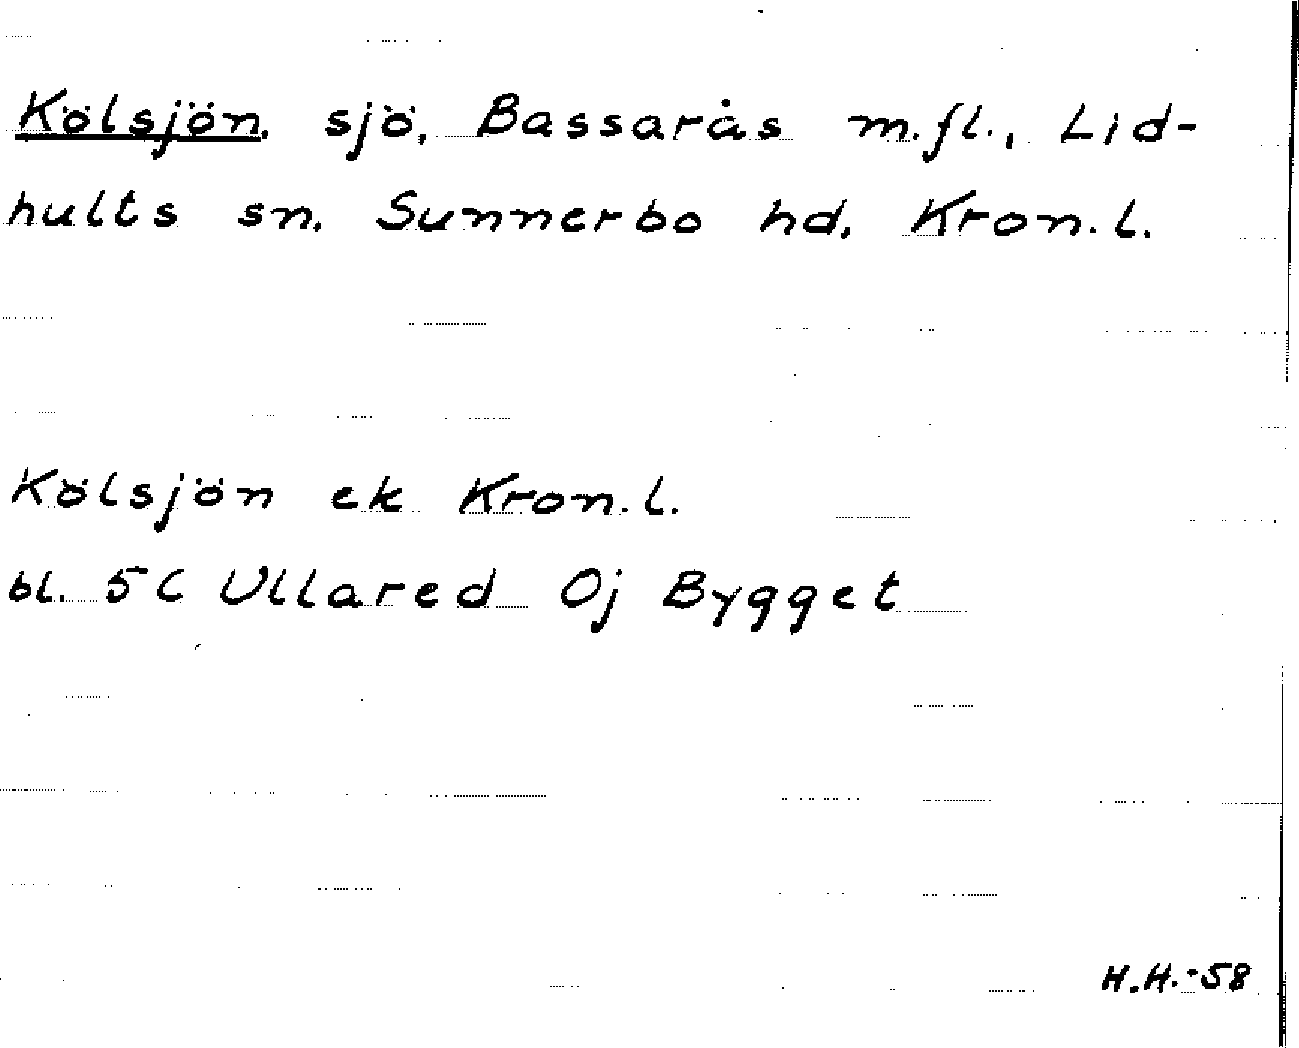 Kölsjön, sjö, Bassarås m.fl., Lid-
hults sn, Sunnerbo hd, Kron.l.
Kölsjön ek Kron.l.
bl. 5C Ullared 0j Bygget
H.H.-58